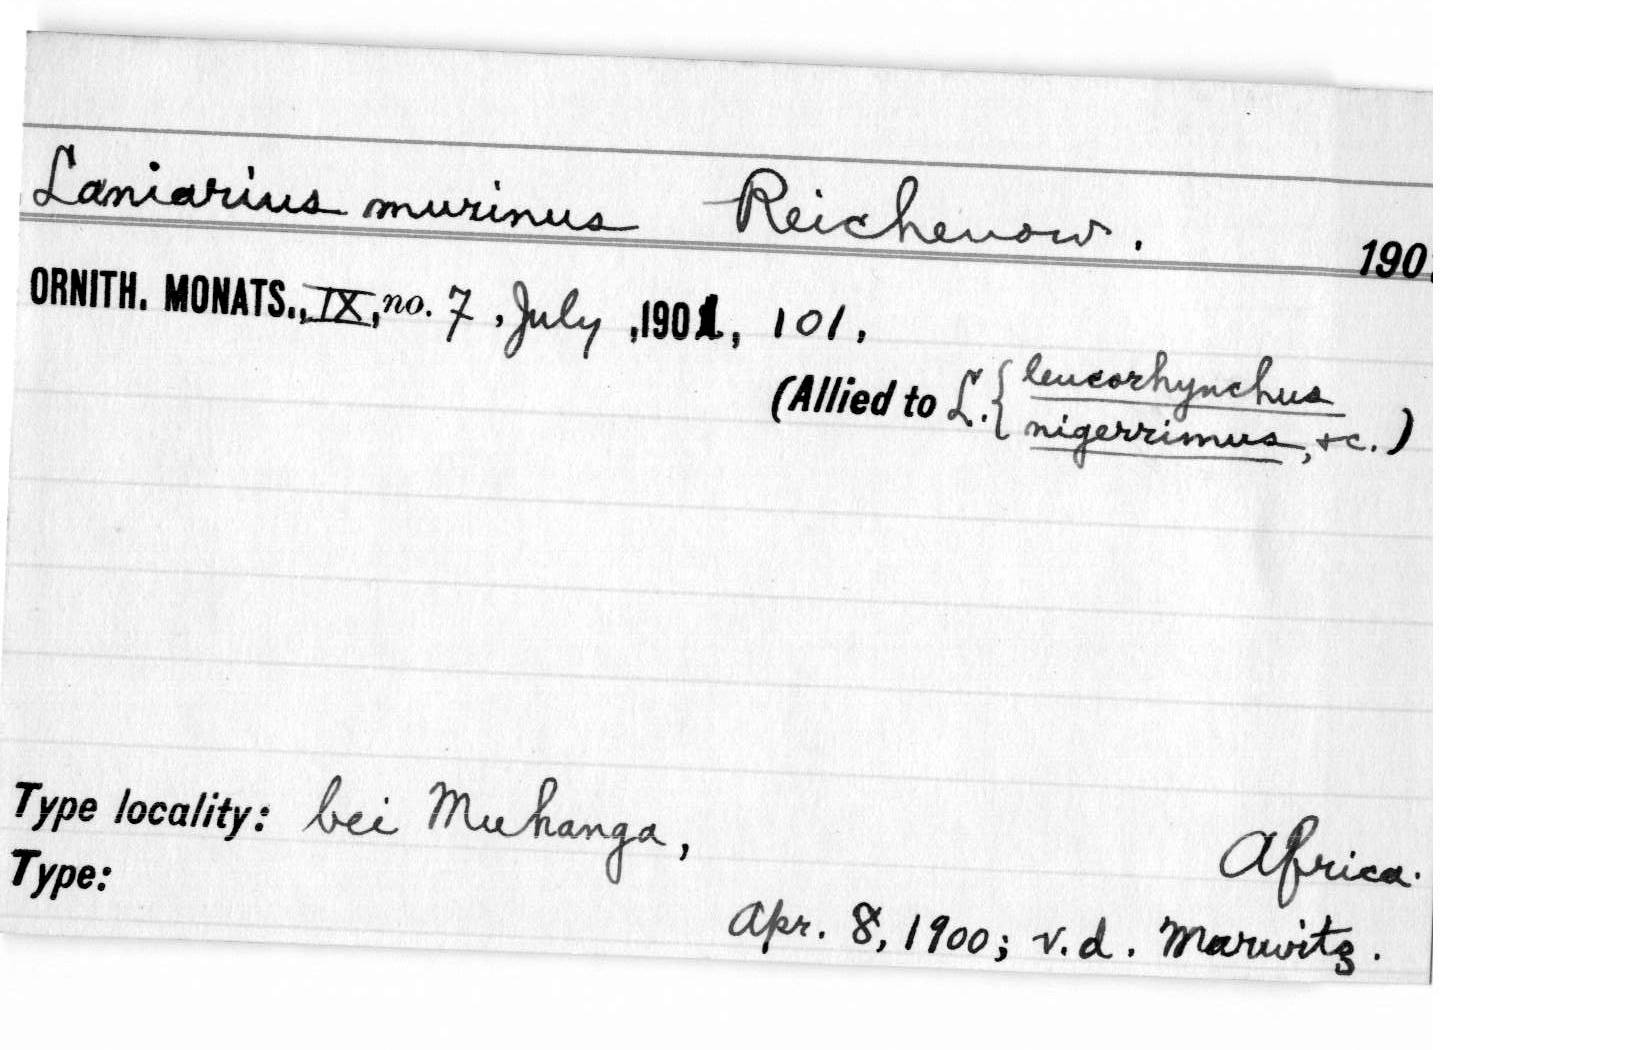 Laniarius murinus Reichenow. 190
ORNITH. MONATS., IX, no. 7, July, 1901, 101,
(Allied to L. { leucorhynchus
nigerrimus, &c.)
Type locality: bei Muhanga, Africa.
Type:
Apr. 8, 1900; v.d. Marwitz.